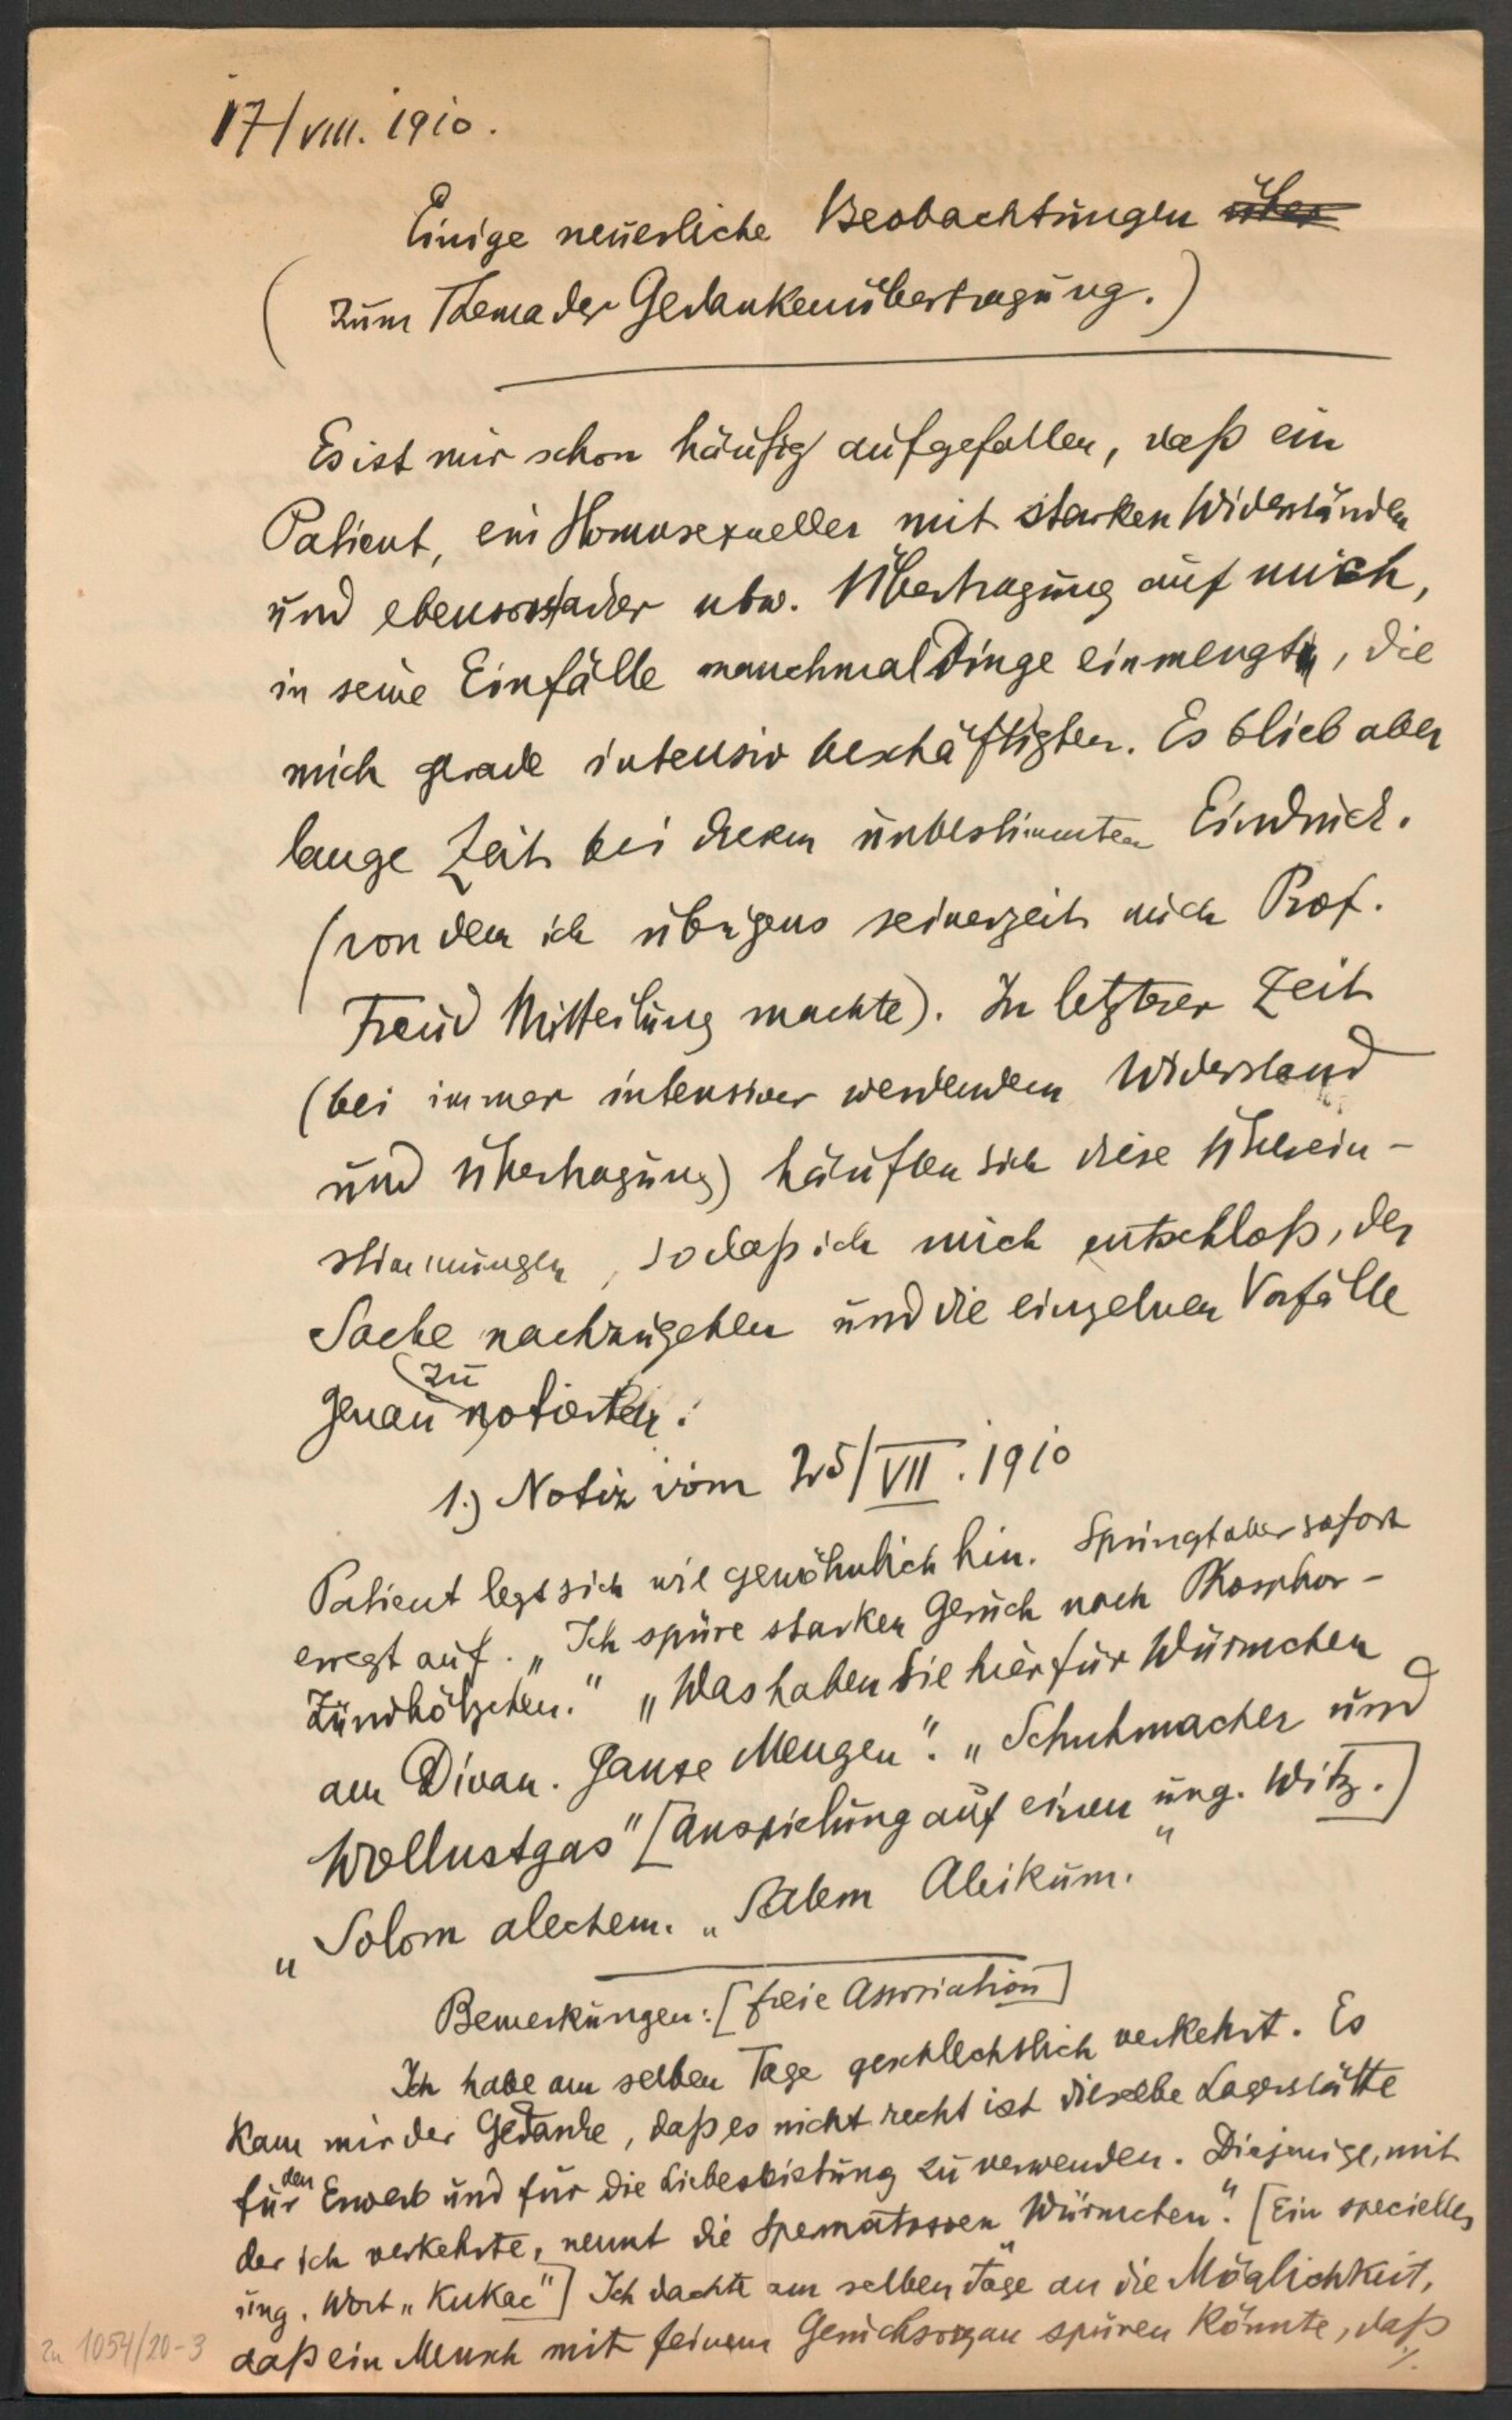 17/VIII. 1910.
Einige neuerliche Beobachtungen über
(zum Thema der Gedankenübertragung.)
Es ist mir schon häufig aufgefallen, daß ein
Patient, ein Homosexueller mit starken Widerständen
und ebensostarker ubw. Übertragung auf mich,
in seine Einfälle manchmal Dinge einmengte, die
mich gerade intensiv beschäftigten. Es blieb aber
lange Zeit bei diesem unbestimmten Eindruck.
(von dem ich übrigens seinerzeit auch Prof.
Freud Mitteilung machte). In letzterer Zeit
(bei immer intensiver werdendem Widerstand
und Übertragung) häuften sich diese Überein-
stimmungen, sodaß ich mich entschloß, der
Sache nachzugehen und die einzelnen Vorfälle
genau zu notieren.
1.) Notiz vom 25/VII. 1910
Patient legt sich wie gewöhnlich hin. Springt aber sofort
erregt auf. „Ich spüre starken Geruch nach Phosphor-
Zündhölzchen." „Was haben Sie hier für Würmchen
am Divan. Ganze Mengen". „Schuhmacher und
Wollustgas" [Anspielung auf einen ung. Witz.]
„Solom alechem. „Salem Aleikum."
Bemerkungen: [freie Assoziation]
Ich habe am selben Tage geschlechtlich verkehrt. Es
kam mir der Gedanke, daß es nicht recht ist dieselbe Lagerstätte
für den Erwerb und für die Liebesleistung zu verwenden. Diejenige, mit
der ich verkehrte, nennt die Spermatozoen „Würmchen". [Ein specielles
ung. Wort „Kukac"] Ich dachte am selben Tage an die Möglichkeit,
daß ein Mensch mit feinem Geruchsorgan spüren könnte, daß
./.
zu 1054/20-3